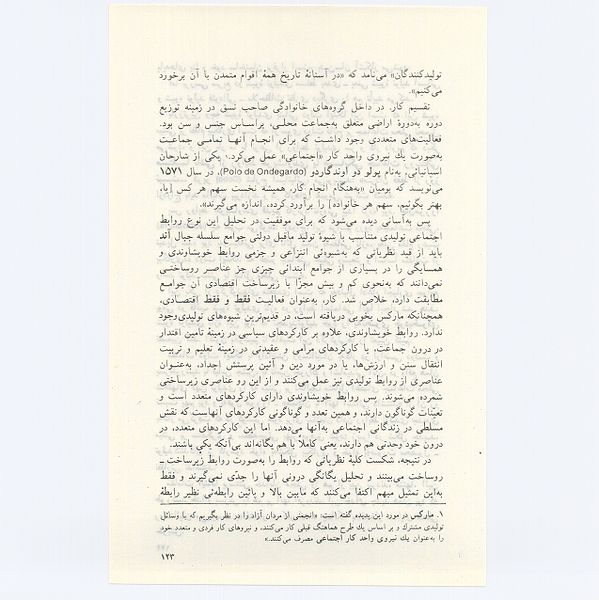 تولیدکنندگان» می‌نامد که «در آستانهٔ تاریخ همهٔ اقوام متمدن با آن برخورد
می‌کنیم».
تقسیم کار، در داخل گروه‌های خانوادگی صاحب نسق در زمینه توزیع
دوره به‌دورهٔ اراضی متعلق به‌جماعت محلی، براساس جنس و سن بود.
فعالیت‌های متعددی وجود داشت که برای انجام آنها تمامی جماعت
به‌صورت یك نیروی واحد کار «اجتماعی» عمل می‌کرد.۱ یکی از شارحان
اسپانیائی، به‌نام پولو دو اوندگاردو (Polo de Ondegardo)، در سال ۱۵۷۱
می‌نویسد که بومیان «به‌هنگام انجام کار، همیشه نخست سهم هر کس [یا،
بهتر بگوئیم، سهم هر خانواده] را برآورد کرده، اندازه می‌گیرند».
پس به‌آسانی دیده می‌شود که برای موفقیت در تحلیل این نوع روابط
اجتماعی تولیدی متناسب با شیوهٔ تولید ماقبل دولتی جوامع سلسله جبال آند
باید از قید نظریاتی که به‌شیوه‌ئی انتزاعی و جزمی روابط خویشاوندی و
همسایگی را در بسیاری از جوامع ابتدائی چیزی جز عناصر روساختی
نمی‌دانند که به‌نحوی کم و بیش مجزا با زیرساخت اقتصادی آن جوامع
مطابقت دارد، خلاص شد. کار، به‌عنوان فعالیت فقط و فقط اقتصادی،
همچنانکه مارکس بخوبی دریافته است، در قدیم‌ترین شیوه‌های تولیدی‌وجود
ندارد. روابط خویشاوندی، علاوه بر کارکردهای سیاسی در زمینهٔ تامین اقتدار
در درون جماعت، یا کارکردهای مرامی و عقیدتی در زمینهٔ تعلیم و تربیت
انتقال سنن و ارزش‌ها، یا در مورد دین و آئین پرستش اجداد، به‌عنوان
عناصری از روابط تولیدی نیز عمل می‌کنند و از این رو عناصری زیرساختی
شمرده می‌شوند. پس روابط خویشاوندی دارای کارکردهای متعدد است و
تعیّنات گوناگون دارند، و همین تعدد و گوناگونی کارکردهای آنهاست که نقش
مسلطی در زندگانی اجتماعی به‌آنها می‌دهد. اما این کارکردهای متعدد، در
درون خود وحدتی هم دارند، یعنی کاملاً با هم یگانه‌اند بی‌آنکه یکی باشند.
در نتیجه، شکست کلیهٔ نظریاتی که روابط را به‌صورت روابط زیرساخت ـ
روساخت می‌بینند و تحلیل یگانگی درونی آنها را جدی نمی‌گیرند و فقط
به‌این تمثیل مبهم اکتفا می‌کنند که مابین بالا و پائین رابطه‌ئی نظیر رابطهٔ
۱. مارکس در مورد این پدیده گفته است: «انجمنی از مردان آزاد را در نظر بگیریم که با وسائل
تولیدی مشترك و بر اساس یك طرح هماهنگ قبلی کار می‌کنند، و نیروهای کار فردی و متعدد خود
را به‌عنوان یك نیروی واحد کار اجتماعی مصرف می‌کنند.»
۱۲۳